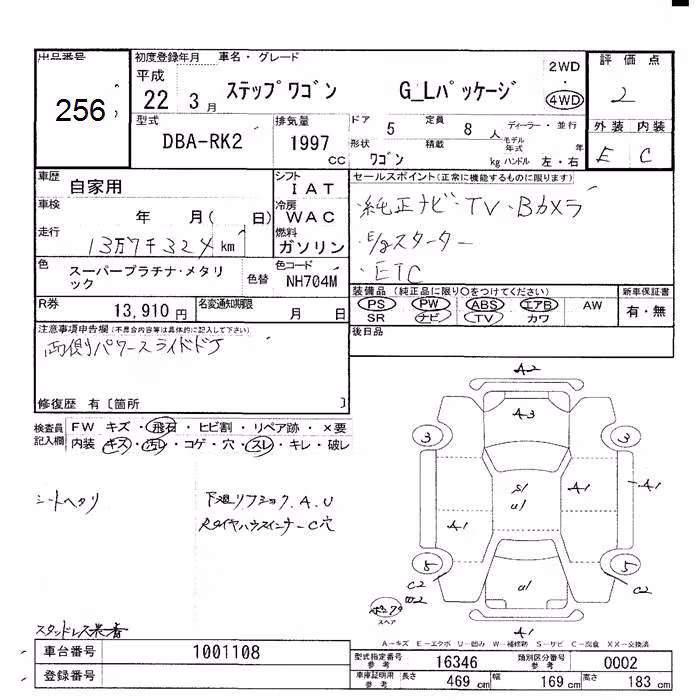 出品番号
256
初度登録年月 車名・グレード
平成
22 3月
ステップワゴン G_Lパッケージ
2WD
・
4WD
評価点
2
外装 内装
E C
型式
DBA-RK2
排気量
1997
cc
ドア 5 定員 8 人 ディーラー・並行
形状 ワゴン 積載 kg
モデル年式 年
ハンドル 左・右
車歴
自家用
シフト
IAT
車検
年 月( 日)
冷房
WAC
走行
13万7千32 km
燃料
ガソリン
色
スーパープラチナ・メタリック
色替
色コード
NH704M
R券
13,910 円
名変通知期限
月 日
セールスポイント(正常に機能するものに限ります)
・純正ナビ・TV・Bカメラ
・E/gスターター
・ETC
装備品 (純正品に限り○をつけてください)
PS PW ABS エアB AW
SR ナビ TV カワ
新車保証書
有・無
後日品
注意事項申告欄(不具合内容等は具体的に記入して下さい)
両側パワースライドドア
修復歴 有〔箇所 〕
検査員記入欄
FW キズ・飛石・ヒビ割・リペア跡・×要
内装 キズ・汚レ・コゲ・穴・スレ・キレ・破レ
シートヘタリ
下廻リフミック.A.U
RタイヤハウスインナーC穴
スタッドレス
A2
A3
3 3
S1
U1
A1
A1
A1
5 5
C2
W2
U1
C2
スペア
A1
A-キズ E-エクボ U-凹み W-補修跡 S-サビ C-腐食 XX-交換済
車台番号
1001108
登録番号
型式指定番号
参考
16346
類別区分番号
参考
0002
車庫証明用
参考
長さ 469 cm 幅 169 cm 高さ 183 cm